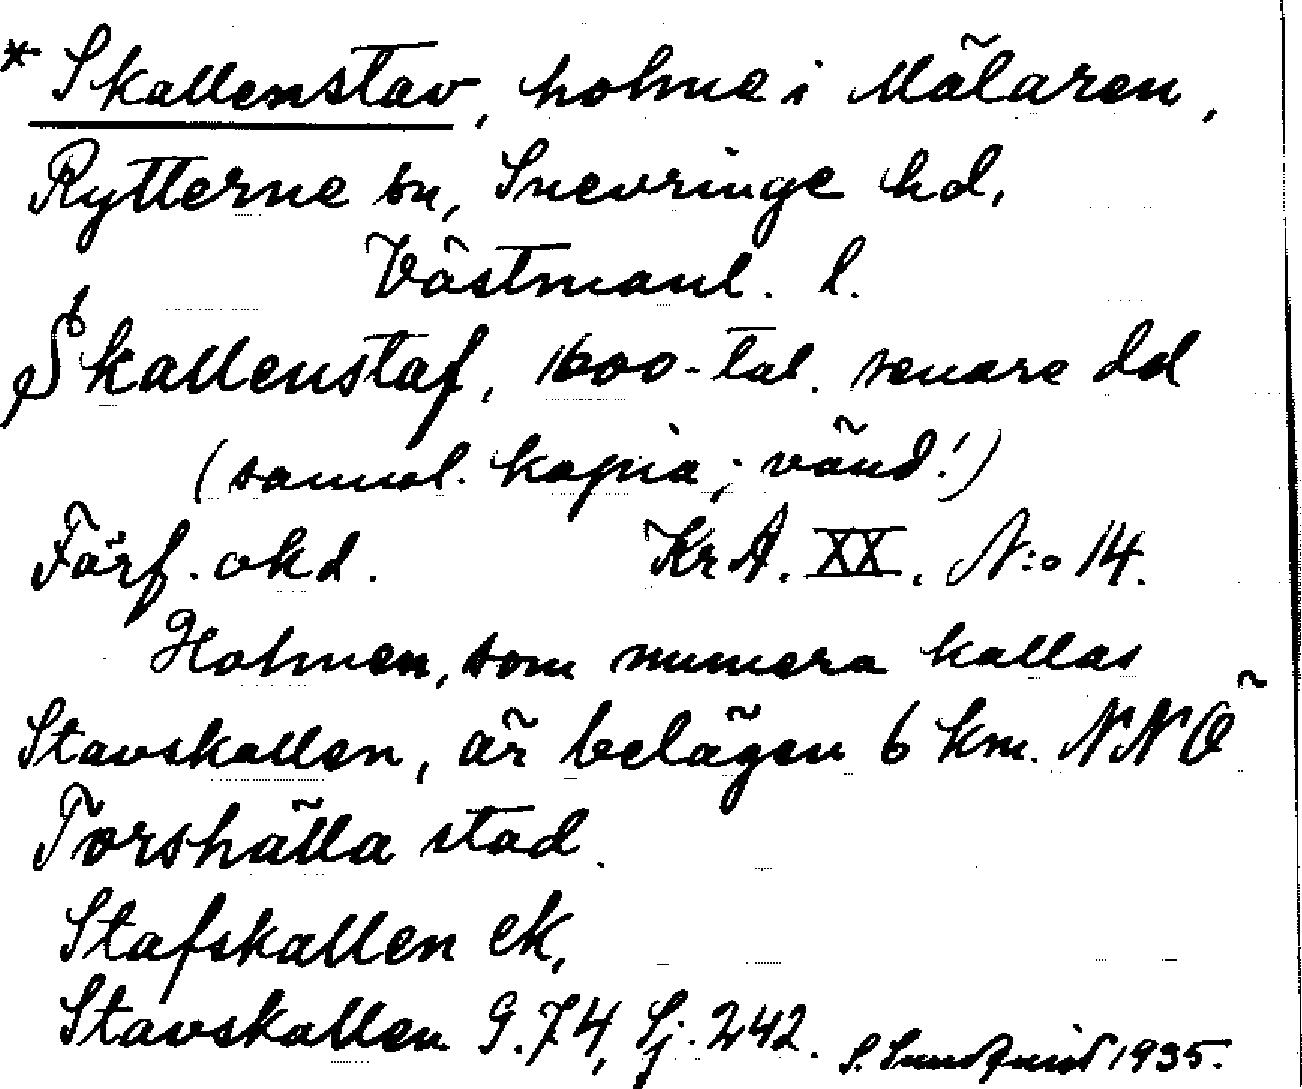 * Skallenstav, holme i Mälaren,
Rytterne sn, Snevringe hd,
Västmanl. l.
Skallenstaf, 1600-tal. senare del
(samml. kopia; vänd!)
Förf. okd. KrA. XX. N:o 14.
Holmen, som numera kallas
Stavskallen, är belägen 6 km. NNÖ
Torshälla stad.
Stafskallen ek,
Stavskallen G. 74, Sj. 242. S. Sundquist 1935.